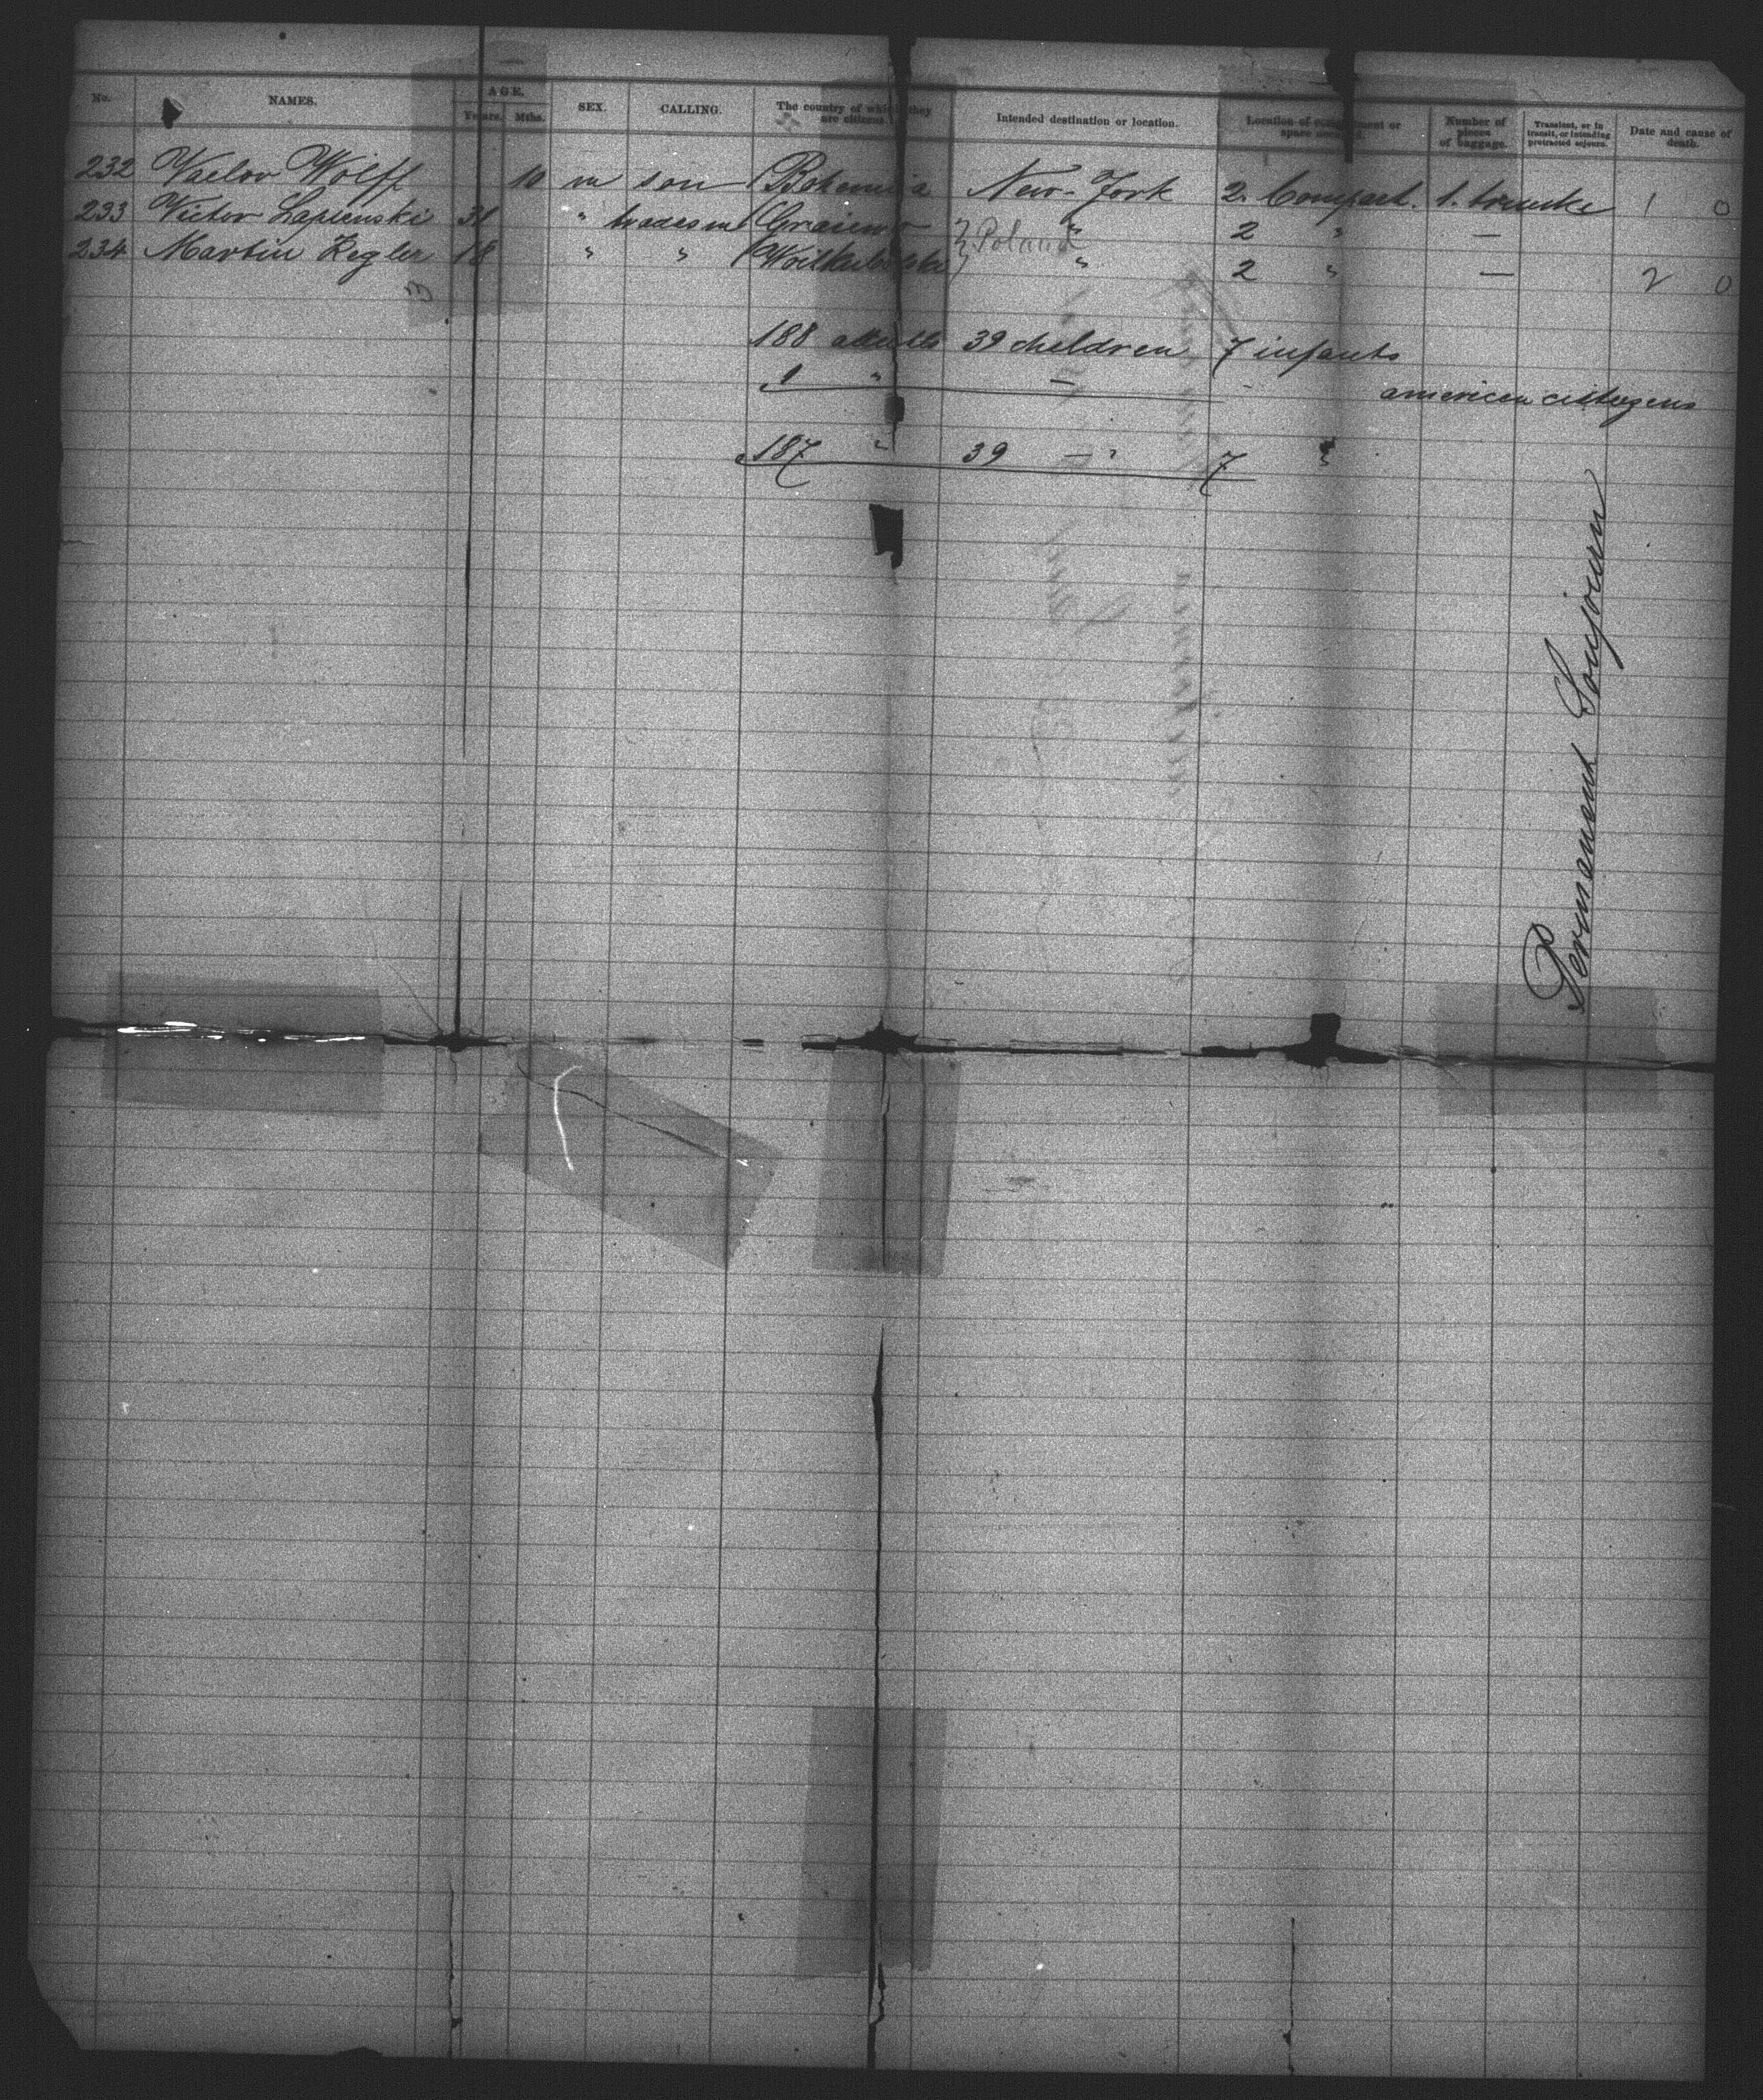 No. NAMES. AGE. Years. Mths. SEX. CALLING. The country of which they are citizens. Intended destination or location. Location of compartment or space occupied. Number of pieces of baggage. Transient, or in transit, or intending protracted sojourn. Date and cause of death.
232 Vaclav Wolff 10 m son Bohemia New-York 2. Compart. 1. trunks 1 0
233 Victor Lapienski 31 " tradesm Graiewo } Poland " 2 " —
234 Martin Regler 18 " " } " 2 " — 2 0
3
188 adults 39 children 7 infants
1 " — american citizens
187 " 39 — " 7 "
Permanent Soujourn